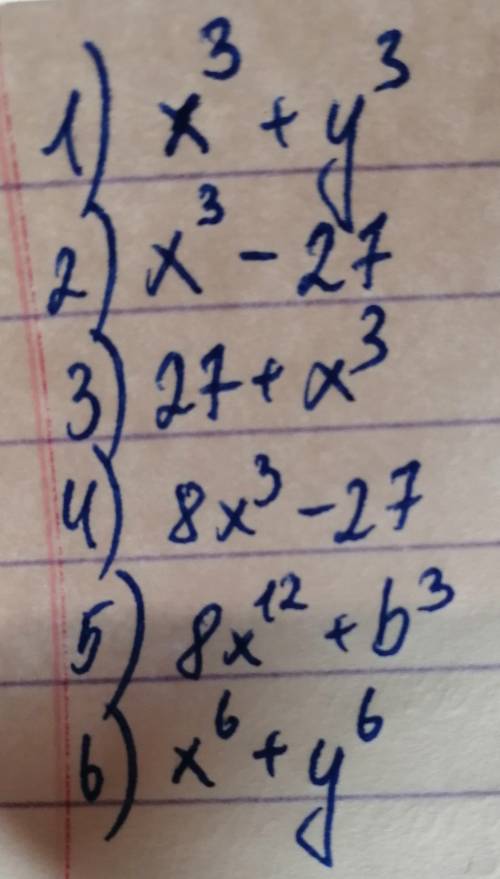 1) x³ + y³
2) x³ - 27
3) 27 + x³
4) 8x³ - 27
5) 8x¹² + b³
6) x⁶ + y⁶